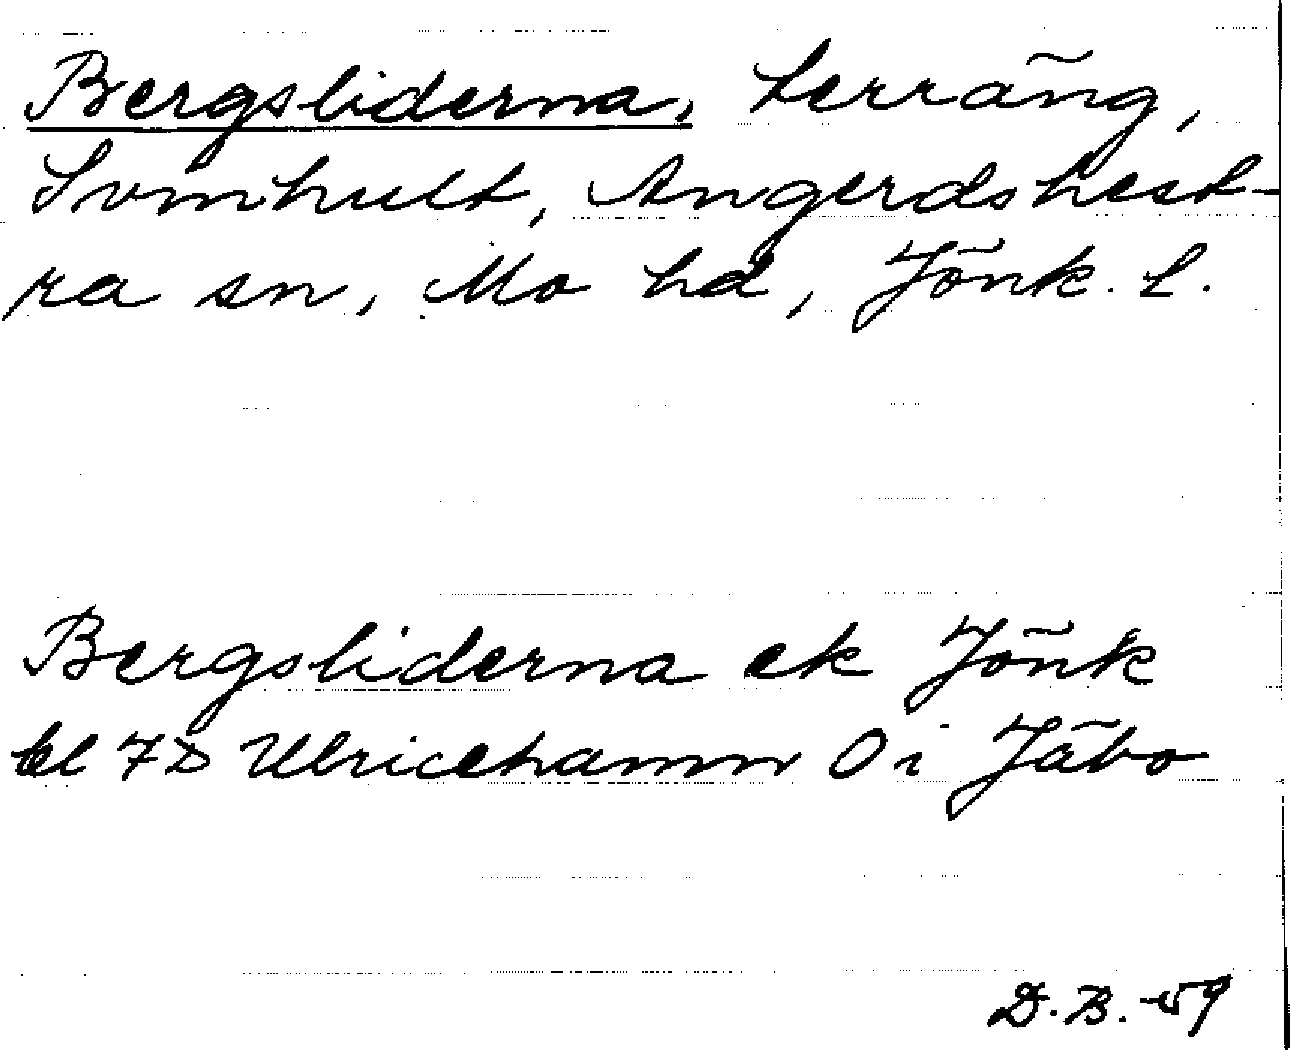 Bergsliderna, terräng,
Svinhult, Angerdshest-
ra sn, Mo hd, Jönk. l.
Bergsliderna ek Jönk
bl 7D Ulricehamn Oi Jäbo
D.B. -59